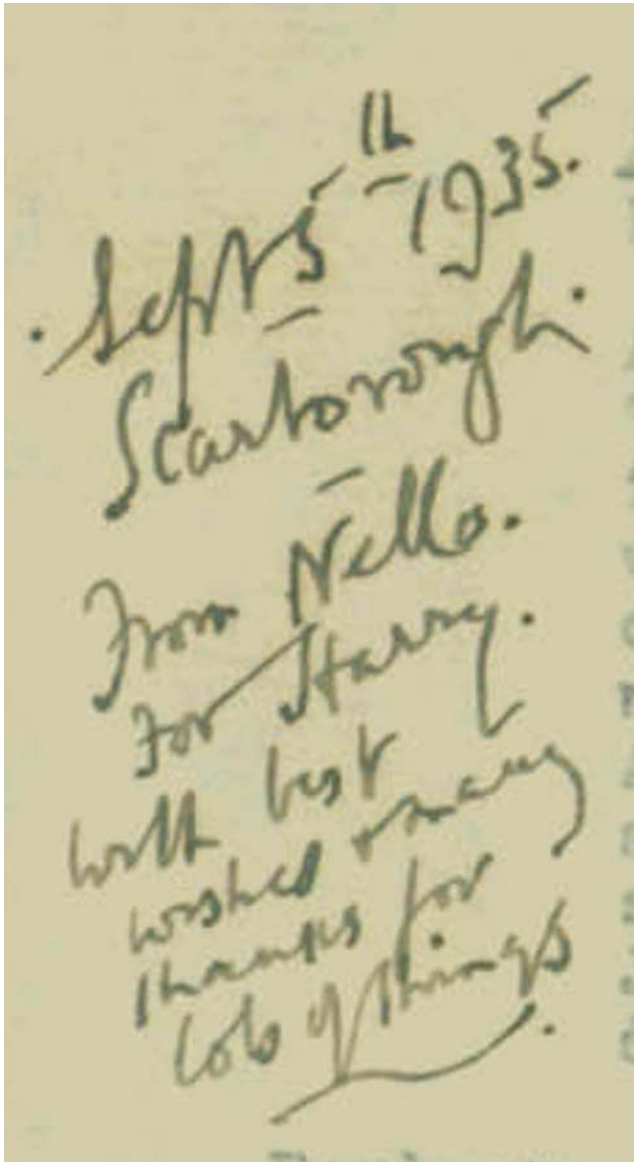 Sept 5th 1935.
Scarborough.
From Nello.
For Harry.
with best
wishes & many
thanks for
lots of things.